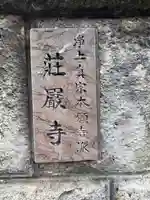 浄土真宗本願寺派
莊嚴寺